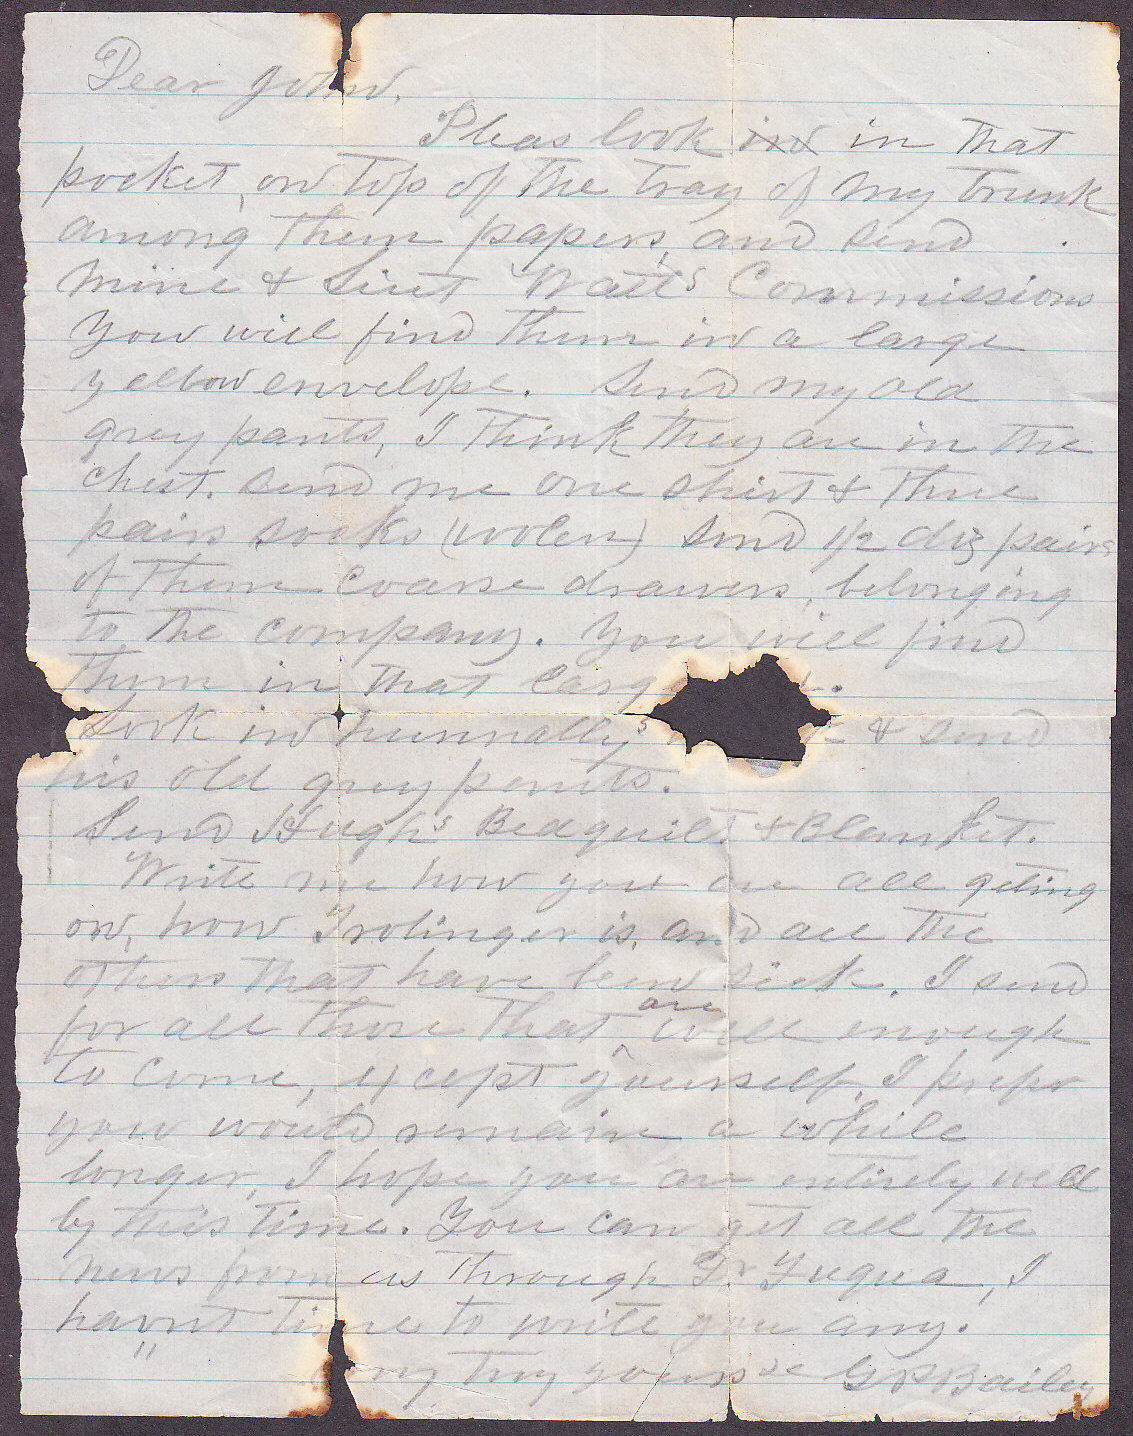 Dear John,
Pleas look in in that
pocket, on top of the tray of my trunk
among them papers, and send
mine & Lieut Watts Commissions
You will find them in a large
yellow envelope. Send my old
grey pants, I think they are in the
chest. Send me one shirt & three
pairs socks (woolen) Send 1/2 doz pairs
of them coarse drawers, belonging
to the company. You will find
them in that larg
Look in Nunnallys & send
his old grey pants.
Send Hughs Bedquilt & Blanket.
Write me how you are all geting
on, how Trolinger is, and all the
others that have been sick. I send
for all those that are well enough
to come, except yourself, I prefer
you would remain a while
longer, I hope you are entirely well
by this time. You can get all the
news from us through Dr Fuqua, I
havnt time to write you any.
try yours &c G P Bailey